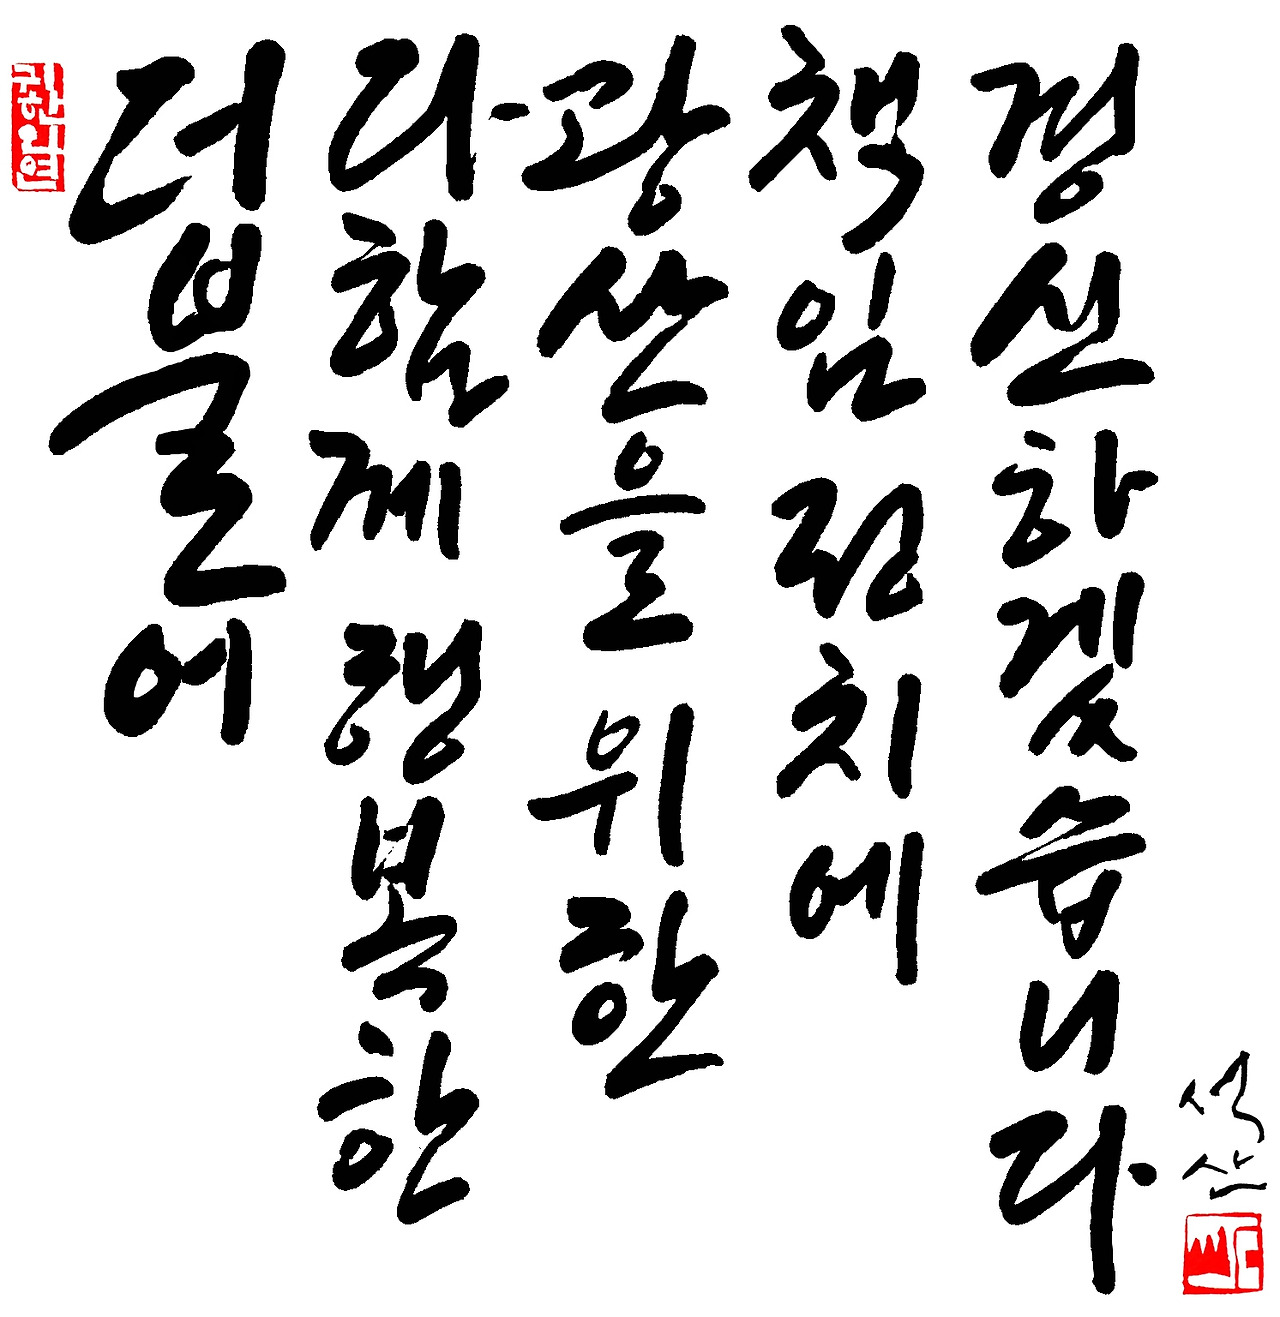 더불어
다함께 행복한
광산을 위한
책임 전치에
경선하겠습니다
석산